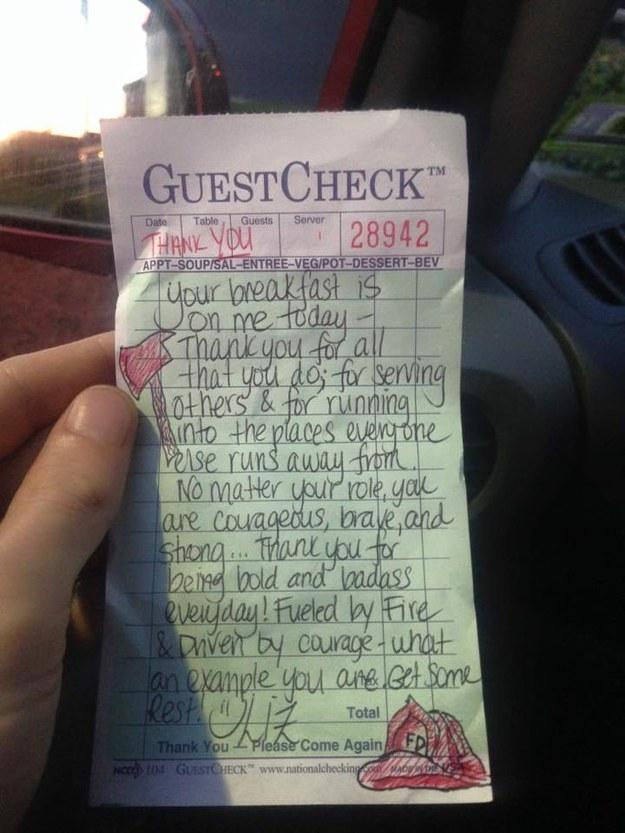 GUESTCHECK™
Date Table Guests Server
THANK YOU 28942
APPT-SOUP/SAL-ENTREE-VEG/POT-DESSERT-BEV
your breakfast is
on me today -
Thank you for all
that you do; for serving
others & for running
into the places everyone
else runs away from.
No matter your role, you
are courageous, brave, and
strong... Thank you for
being bold and badass
everyday! Fueled by Fire
& Driven by courage - what
an example you are. Get Some
Rest! Liz
Total
Thank You - Please Come Again
FD
NCCO 104 GUESTCHECK™ www.nationalchecking.com MADE IN THE USA